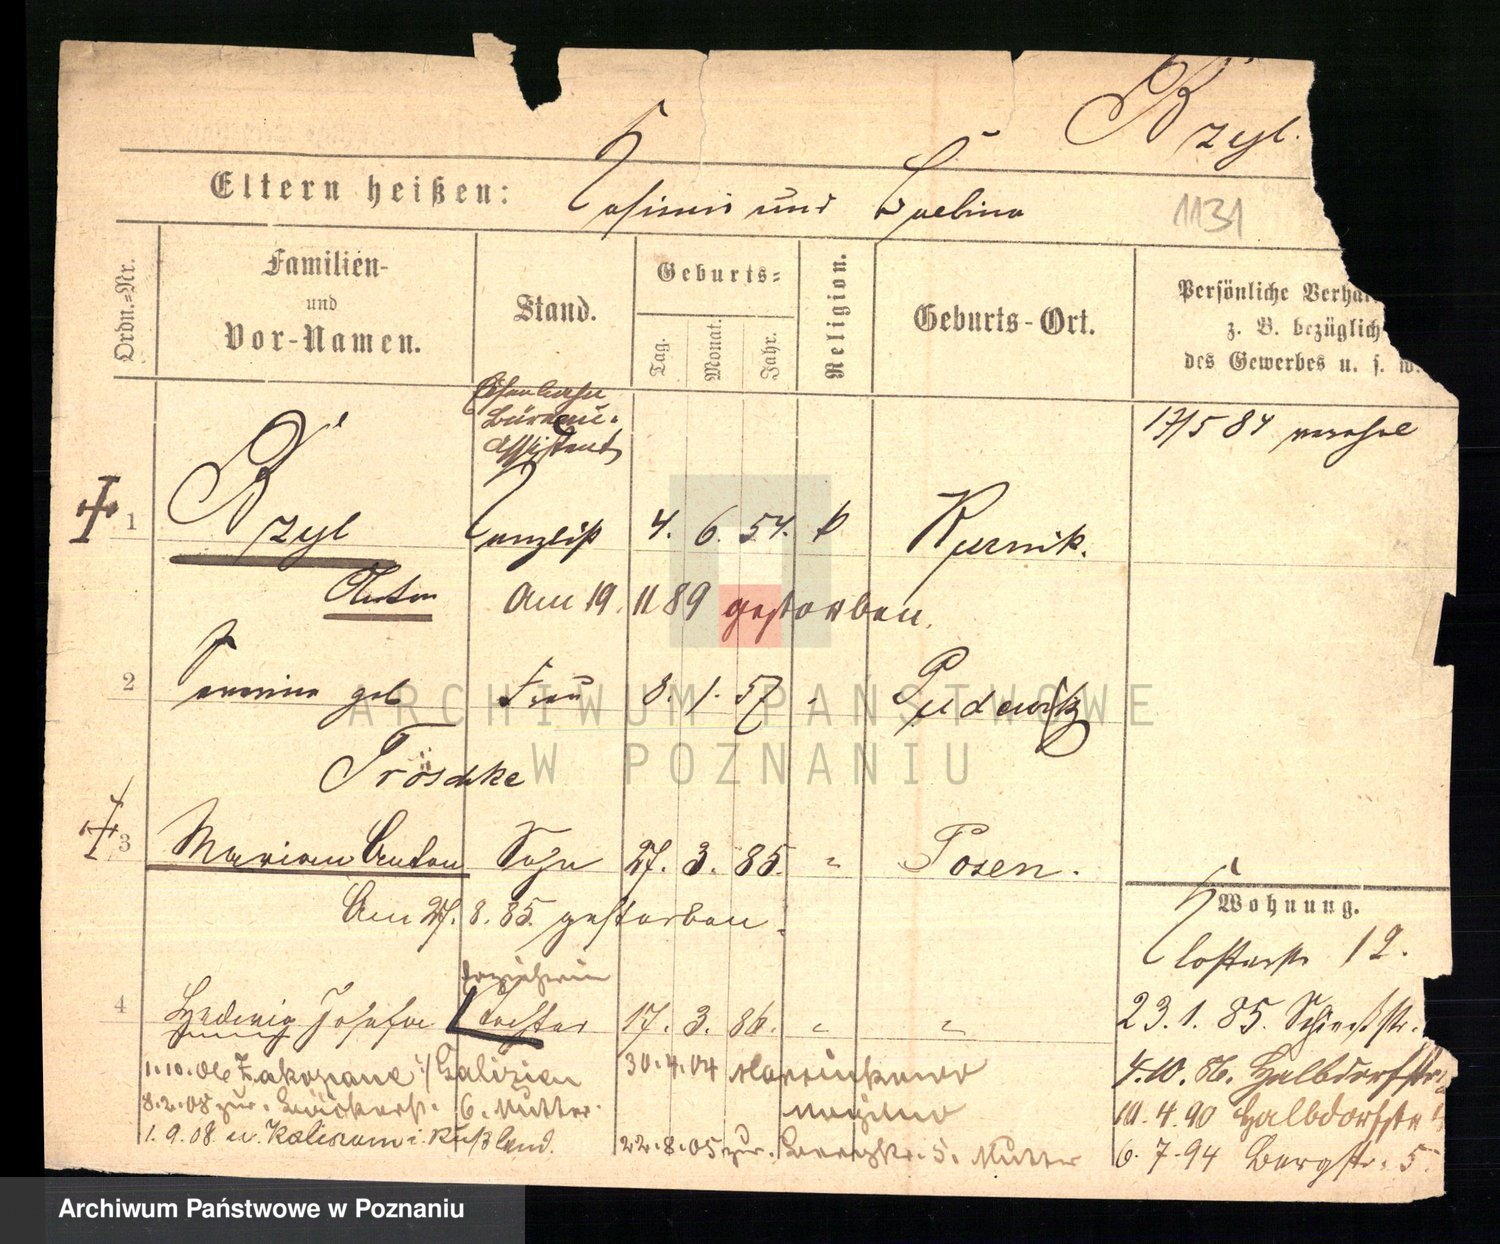 Bzyl.
Eltern heißen: Kasimir und Balbina
1131
Ordn.=Nr.
Familien-
und
Vor-Namen.
Stand.
Geburts=
Tag.
Monat.
Jahr.
Religion.
Geburts-Ort.
Persönliche Verhä
z. B. bezüglich
des Gewerbes u. s. w.
Eisenbahn
Büreau-
Assistent
17/5 84
1 Bzyl Kanzlist 4. 6. 54. k Kurnik.
Anton Am 19. 11 89 gestorben.
2 geb Frau 8. 1. 57 " Pudewitz
Tröschke
3 Marian Anton Sohn 27. 3. 85. " Posen.
Am 27. 8. 85. gestorben.
Wohnung.
Klosterstr 12.
Erzieherin
4 Hedwig Josefa Tochter 17. 3. 86. " "
23. 1. 85. Schießstr.
1.10.06 Zakopane i/Galizien 30.4.04
4.10.86. Halbdorfstr
8.2.08 zur. 6. Mutter.
10.4.90 Halbdorfstr
1.9.08 n. i. Rußland. 22.8.05 zur. 5. Mutter
6.7.94 Bergstr. 5.
ARCHIWUM PAŃSTWOWE
W POZNANIU
Archiwum Państwowe w Poznaniu